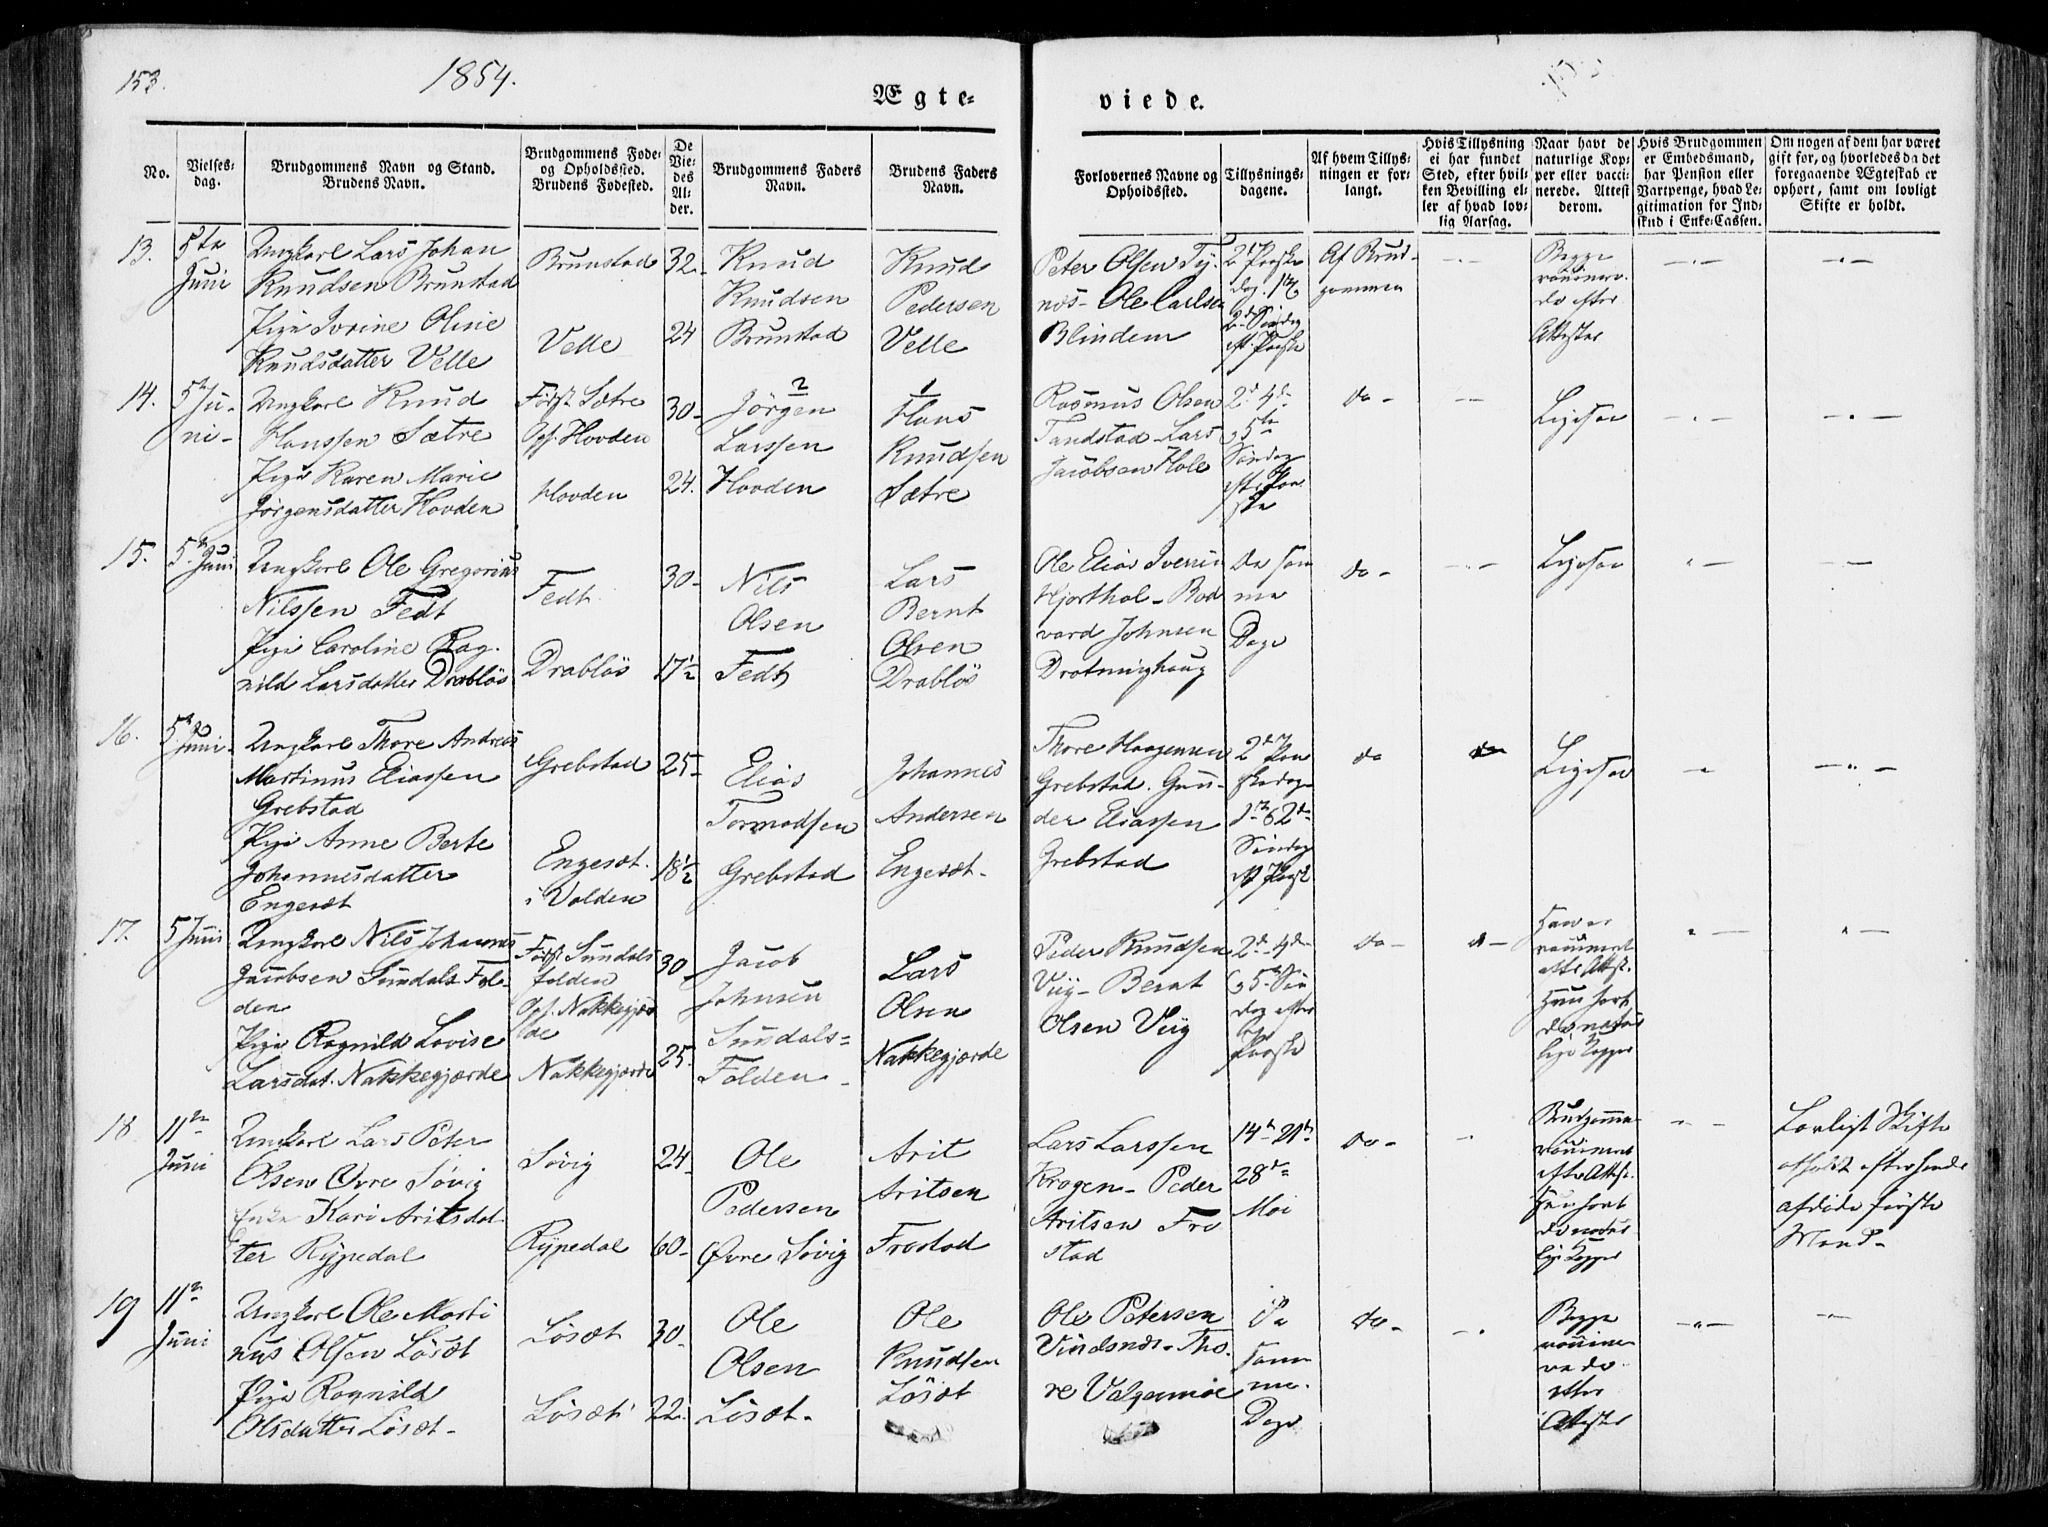 153.
1854.
Ægte-
viede.
No.
Vielses-
dag.
Brudgommens Navn og Stand.
Brudens Navn.
Brudgommens Føde-
og Opholdssted.
Brudens Fødested.
De
Vie-
des
Al-
der.
Brudgommens Faders
Navn.
Brudens Faders
Navn.
Forlovernes Navne og
Opholdssted.
Tillysnings-
dagene.
Af hvem Tillys-
ningen er for-
langt.
Hvis Tillysning
ei har fundet
Sted, efter hvil-
ken Bevilling el-
ler af hvad lov-
lig Aarsag.
Naar havt de
naturlige Kop-
per eller vacci-
nerede. Attest
derom.
Hvis Brudgommen
er Embedsmand,
har Pension eller
Vartpenge, hvad Le-
gitimation for Ind-
skud i Enke-Cassen.
Om nogen af dem har været
gift før, og hvorledes da det
foregaaende Ægteskab er
ophørt, samt om lovligt
Skifte er holdt.
13.
5te
Juni
Ungkarl Lars Johan
Knudsen Brunstad
Pige Ivrine Oline
Knudsdatter Velle
Brunstad
Velle
32-
24
Knud
Knudsen
Brunstad
Knud
Pedersen
Velle
Peter Olsen Ty-
nes- Ole Carlsen
Blindem
2d Paaske
dag. 1te
2d Søndag
eft. Paaske
Af Brud-
gommen
Begge
vaccinere-
de efter
Attester
14.
5te Ju-
ni-
Ungkarl Knud
Hanssen Sætre
Pige Karen Marie
Jørgensdatter Hovden
Født Sætre
Oph. Hovden
Hovden
30-
24.
2
Jørgen
Larssen
Hovden
1
Hans
Knudsen
Sætre
Rasmus Olsen
Tandstad Lars
Jacobsen Hole
2d 4de
og 5te
Søndag
efter Paa
ske
do-
Ligesaa
15.
5te Juni
Ungkarl Ole Gregorius
Nilssen Fedt
Pige Caroline Rag-
nild Larsdatter Drabløs
Fedt
Drabløs
30-
17½
Nils
Olsen
Fedt
Lars
Bernt
Olsen
Drabløs
Ole Elias Iversen
Hjorthol- Bod
vard Johnsen
Drotninghaug
De sam
me
Dage
do-
Ligesaa
16.
5te Juni-
Ungkarl Thore Andreas
Martinus Eliassen
Grebstad
Pige Anne Berte
Johannesdatter
Engesæt
Grebstad
Engesæt
i Volden
25-
18½
Elias
Tormodsen
Grebstad
Johannes
Andersen
Engesæt-
Thore Haagensen
Grebstad. Gun-
der Eliassen
Grebstad
2den Paa
skedag
1te og 2de
Søndag
eft Paaske
do
do
Ligesaa
17.
5 Juni
Ungkarl Nils Johannes
Jacobsen Sundals Fol-
den
Pige Ragnild Lovise
Larsdat. Nakkegjærde
Født Sundals
folden
Oph. Nakkegjær
de
Nakkegjærde
30-
25.
Jacob
Johnsen
Sundals-
Folden
Lars
Olsen
Nakkegjærde
Peder Knudsen
Viig- Bernt
Olsen Viig
2d- 4de
og 5te Søn
dag efter
Paaske
do-
d-
Han er
vaccineret
efter Attest.
Hun havt
de natur
lige Kopper
18
11te
Juni
Ungkarl Lars Peter
Olsen Øvre Søvig
Enke Kari Aritsdat
ter Rypedal
Søvig
Rypedal
24-
60-
Ole
Pedersen
Øvre Søvig
Arit
Aritsen
Frostad
Lars Larssen
Kragen- Peder
Aritsen Fro
stad
14de 21de
28de
Mai
do-
Brudgomme
vaccineret
efter Attest.
Hun havt
de natur
lige Kopper
Lovligt Skifte
afholdt efter hende
afdøde første
Mand-
19
11te
Juni
Ungkarl Ole Marti
nus Olsen Løsæt
Pige Ragnild
Olsdatter Løsæt-
Løsæt
Løsæt
30-
22-
Ole
Olsen
Løsæt-
Ole
Knudsen
Løsæt
Ole Petersen
Vindsnæs- Tho-
re Valgermoe
De
sam
me
Dage
do-
Begge
vaccine
rede
efter
Attester